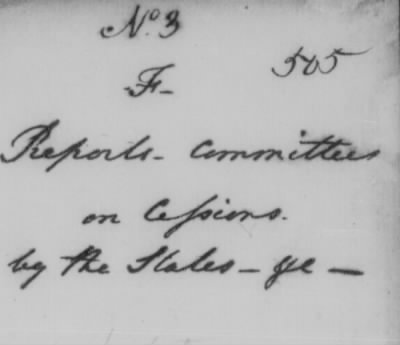 No. 3
505
-F-
Reports - Committees
on Cessions.
by the States - &c -